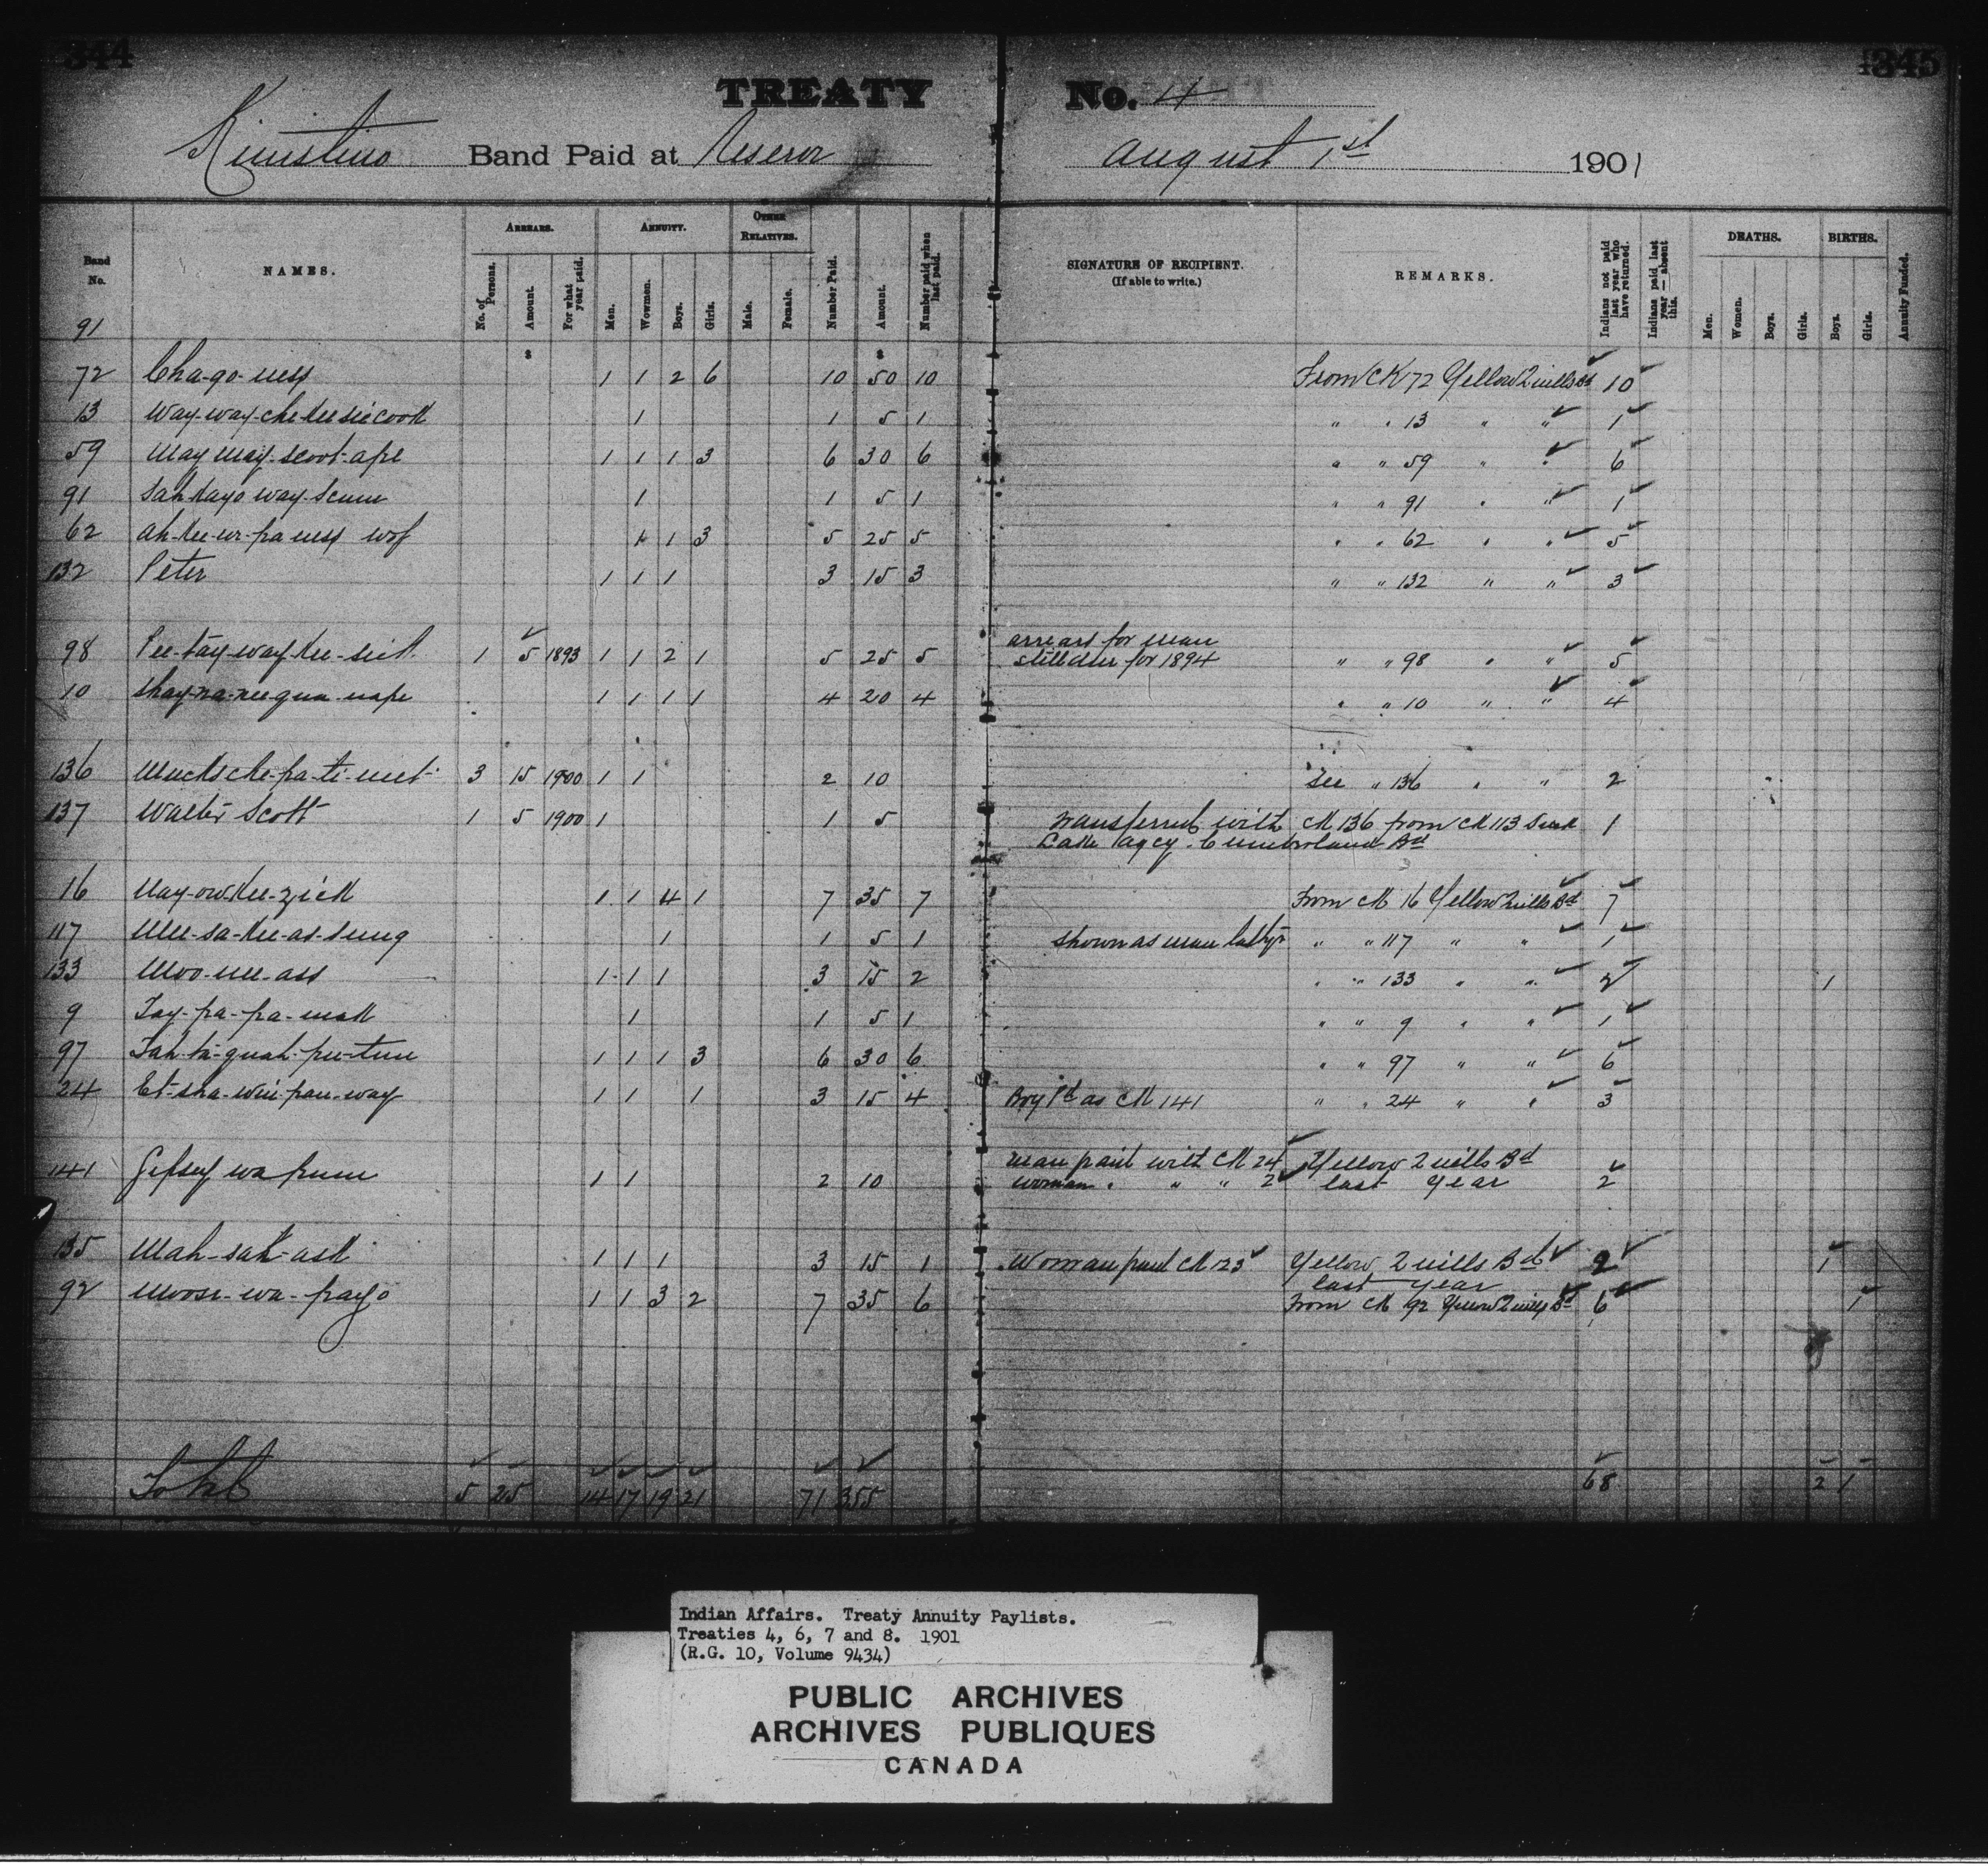 344
345
TREATY No. 4
Kinistino Band Paid at Reserve August 1st 1901
Band No.
NAMES.
ARREARS.
No. of Persons.
Amount.
For what year paid.
ANNUITY.
Men.
Wowmen.
Boys.
Girls.
OTHER RELATIVES.
Male.
Female.
Number Paid.
Amount.
Number paid when last paid.
SIGNATURE OF RECIPIENT.
(If able to write.)
REMARKS.
Indians not paid last year who have returned.
Indians paid last year — absent this.
DEATHS.
Men.
Women.
Boys.
Girls.
BIRTHS.
Boys.
Girls.
Annuity Funded.
91
$ $
72 Cha-go-ness 1 1 2 6 10 50 10 From CK 72 Yellow Quills Bd 10
13 Way-way-che-kee-sie-cook 1 1 5 1 " " 13 " " 1
59 May may-scoot-ape 1 1 1 3 6 30 6 " " 59 " " 6
91 Sah kayo way-scum 1 1 5 1 " " 91 " " 1
62 Ah-kee-we-pa ness wof 1 1 3 5 25 5 " " 62 " " 5
132 Peter 1 1 1 3 15 3 " " 132 " " 3
98 Pee-tay-way-kee-sick 1 5 1893 1 1 2 1 5 25 5 arrears for man
still due for 1894 " " 98 " " 5
10 Shay-na-nee-qua-nape 1 1 1 1 4 20 4 " " 10 " " 4
136 Muckscke-pa-te-neet 3 15 1900 1 1 2 10 See " 136 " " 2
137 Walter Scott 1 5 1900 1 1 5 Transferred with CK 136 from CK 113 Duck 1
Lake Agcy. Cumberland Bd
16 Nay-ow-kee-zick 1 1 4 1 7 35 7 From CK 16 Yellow Quills Bd 7
117 Mee-sa-kee-as-sung 1 1 5 1 Shown as man last yr " " 117 " " 1
133 Moo-nee-ass 1 1 1 3 15 2 " " 133 " " 2 1
9 Tay-pa-pa-mak 1 1 5 1 " " 9 " " 1
97 Tah-ta-quah-pee-tun 1 1 1 3 6 30 6 " " 97 " " 6
24 Et-sha-win-pau-way 1 1 1 3 15 4 Boy Pd as CK 141 " " 24 " " 3
141 Gipsey wa pum 1 1 2 10 man paid with CK 24 Yellow Quills Bd
woman " " " 2 last Year 2
135 Mah-sah-ask 1 1 1 3 15 1 Woman paid CK 123 Yellow Quills Bd 2 1
last year
92 Moose-wa-payo 1 1 3 2 7 35 6 From CK 92 Yellow Quills Bd 6 1
Total 5 25 14 17 19 21 71 355 68 2 1
Indian Affairs. Treaty Annuity Paylists.
Treaties 4, 6, 7 and 8. 1901
(R.G. 10, Volume 9434)
PUBLIC ARCHIVES
ARCHIVES PUBLIQUES
CANADA